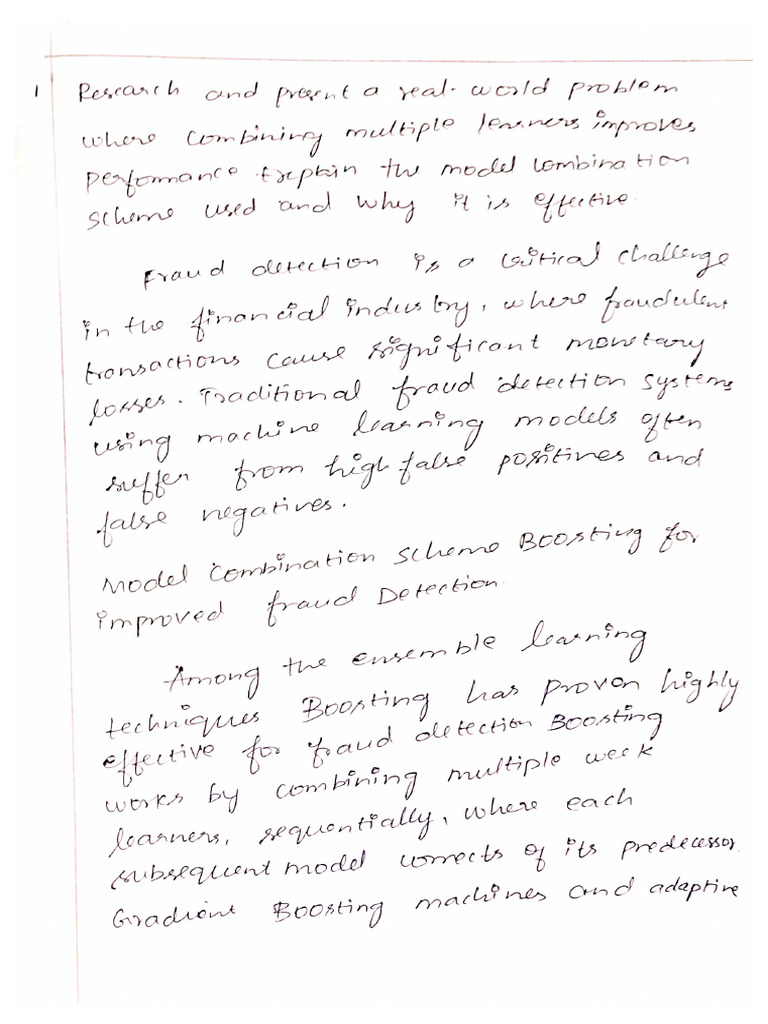 1 Research and present a real-world problem
where combining multiple learners improves
performance Explain the model combination
scheme used and why it is effective.
Fraud detection is a critical challenge
in the financial industry, where fraudulent
transactions cause significant monetary
losses. Traditional fraud detection systems
using machine learning models often
suffer from high false positives and
false negatives.
Model Combination Scheme Boosting for
improved fraud Detection.
Among the ensemble learning
techniques Boosting has proven highly
effective for fraud detection Boosting
works by combining multiple week
learners, sequentially, where each
subsequent model corrects of its predecessor.
Gradient Boosting machines and adaptive